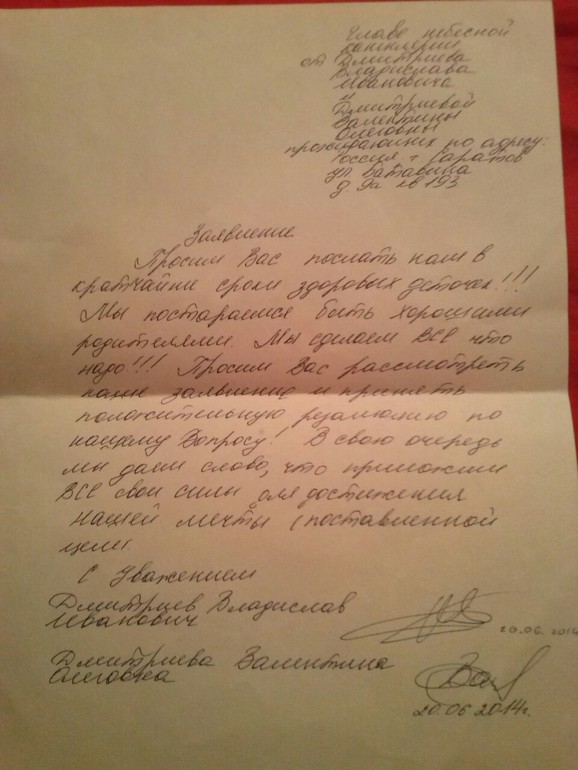 Главе небесной
канцелярии
от Дмитриева
Владислава
Ивановича
и
Дмитриевой
Валентины
Олеговны
проживающих по адресу:
Россия г. Саратов
ул. Батавина
д. 9а кв 193
Заявление
Просим Вас послать нам в
кратчайшие сроки здоровых деточек!!!
Мы постараемся быть хорошими
родителями. Мы сделаем ВСЕ что
надо!!! Просим Вас рассмотреть
наше заявление и принять
положительную резолюцию по
нашему вопросу! В свою очередь
мы даем слово, что приложим
ВСЕ свои силы для достижения
нашей мечты (поставленной
цели.
С Уважением
Дмитриев Владислав
Иванович
20.06.2014
Дмитриева Валентина
Олеговна
20.06.2014г.